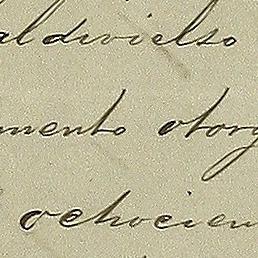 aldivielso
mento otorg
ochocien